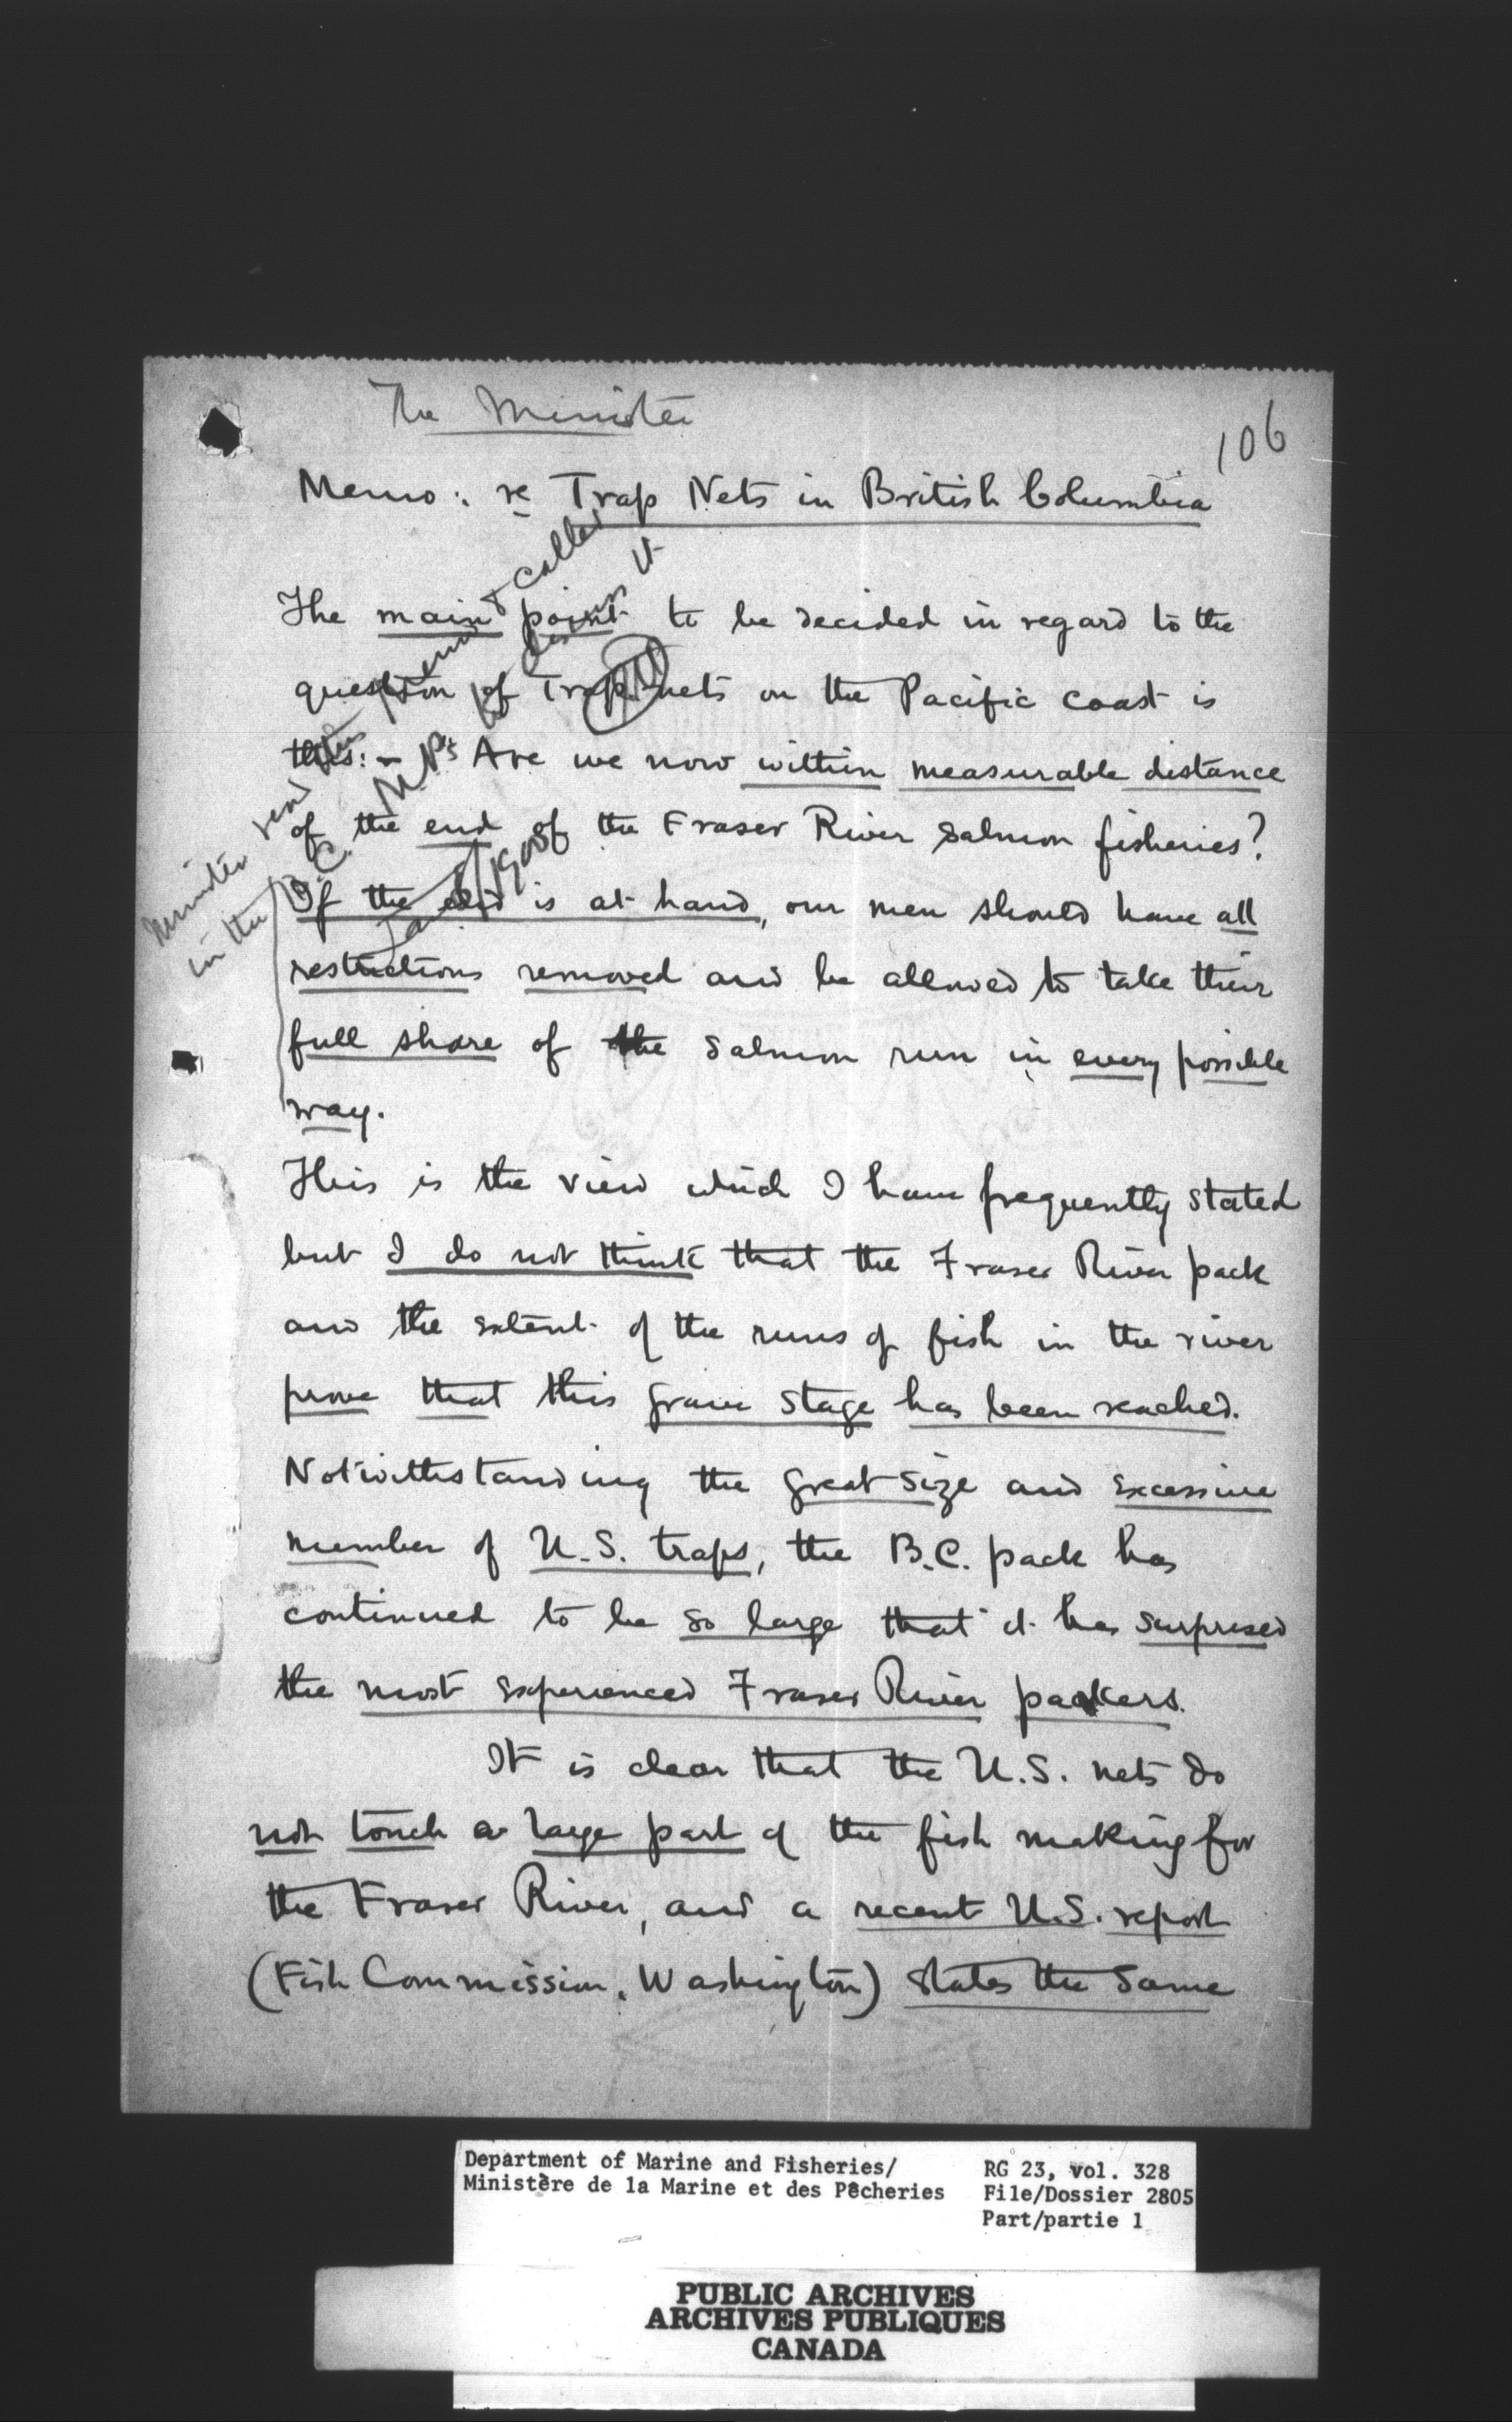 The Minister
106
Memo: re Trap Nets in British Columbia
The main point to be decided in regard to the
question of Trap-nets on the Pacific coast is
this:- Are we now within measurable distance
of the end of the Fraser River salmon fisheries?
If the end is at hand, our men should have all
restrictions removed and be allowed to take their
full share of the salmon run in every possible
way.
This is the view which I have frequently stated
but I do not think that the Fraser River pack
and the extent of the runs of fish in the river
prove that this grave stage has been reached.
Notwithstanding the great size and excessive
number of U.S. traps, the B.C. pack has
continued to be so large that it has surprised
the most experienced Fraser River packers.
It is clear that the U.S. nets do
not touch a large part of the fish making for
the Fraser River, and a recent U.S. report
(Fish Commission, Washington) states the same
Minister read this memo & called
in the B.C. M.P's to discuss it
Jany 1905
Department of Marine and Fisheries/
Ministère de la Marine et des Pêcheries
RG 23, vol. 328
File/Dossier 2805
Part/partie 1
PUBLIC ARCHIVES
ARCHIVES PUBLIQUES
CANADA